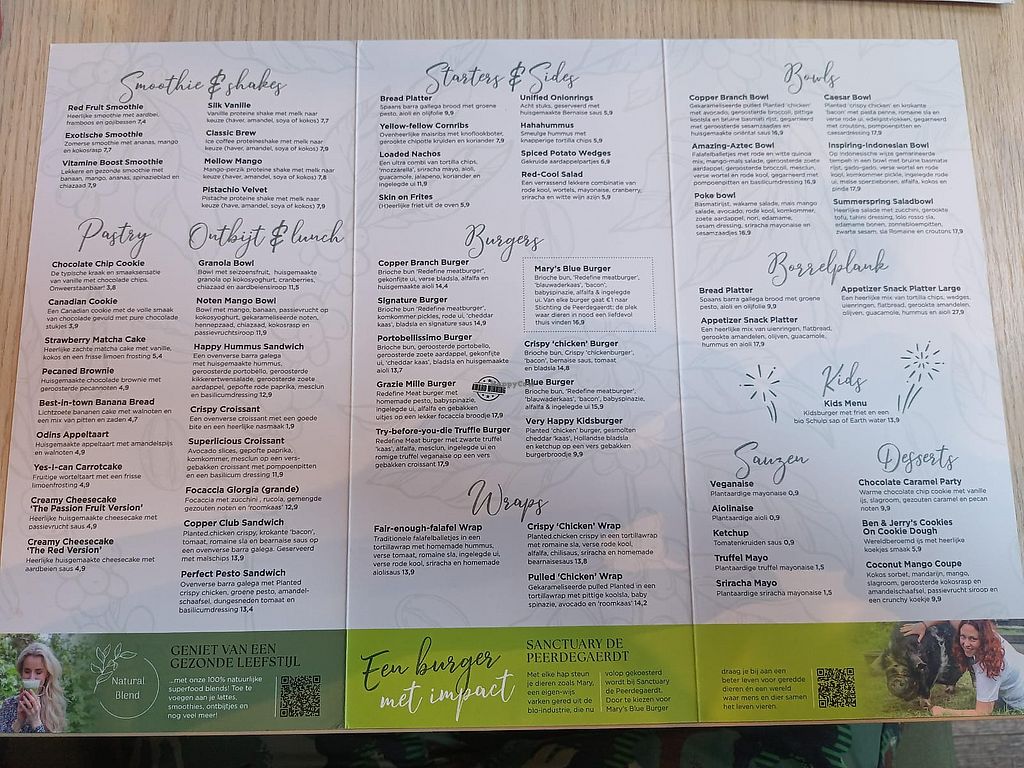 Smoothie & shakes
Red Fruit Smoothie
Heerlijke smoothie met aardbei,
framboos en gojibessen 7,4
Exotische Smoothie
Zomerse smoothie met ananas, mango
en kokosrasp 7,7
Vitamine Boost Smoothie
Lekkere en gezonde smoothie met
banaan, mango, ananas, spinazieblad en
chiazaad 7,9
Silk Vanille
Vanille proteine shake met melk naar
keuze (haver, amandel, soya of kokos) 7,7
Classic Brew
Ice coffee proteineshake met melk naar
keuze (haver, amandel, soya of kokos) 7,9
Mellow Mango
Mango-perzik proteine shake met melk naar
keuze (haver, amandel, soya of kokos) 7,8
Pistachio Velvet
Pistache proteine shake met melk naar
keuze (haver, amandel, soya of kokos) 7,9
Pastry
Chocolate Chip Cookie
De typische kraak en smaaksensatie
van vanille met chocolate chips.
Onweerstaanbaar! 3,8
Canadian Cookie
Een Canadian cookie met de volle smaak
van chocolate gevuld met pure chocolate
stukjes 3,9
Strawberry Matcha Cake
Heerlijke zachte matcha cake met vanille,
kokos en een frisse limoen frosting 5,4
Pecaned Brownie
Huisgemaakte chocolate brownie met
geroosterde pecannoten 4,9
Best-in-town Banana Bread
Lichtzoete bananen cake met walnoten en
een mix van pitten en zaden 4,7
Odins Appeltaart
Huisgemaakte appeltaart met amandelspijs
en walnoten 4,9
Yes-i-can Carrotcake
Fruitige worteltaart met een frisse
limoenfrosting 4,9
Creamy Cheesecake
'The Passion Fruit Version'
Heerlijke huisgemaakte cheesecake met
passievrucht saus 4,9
Creamy Cheesecake
'The Red Version'
Heerlijke huisgemaakte cheesecake met
aardbeien saus 4,9
Ontbijt & lunch
Granola Bowl
Bowl met seizoensfruit, huisgemaakte
granola op kokosyoghurt, cranberries,
chiazaad en aardbeiensiroop 11,5
Noten Mango Bowl
Bowl met mango, banaan, passievrucht op
kokosyoghurt, gekarameliseerde noten,
hennepzaad, chiazaad, kokosrasp en
passievruchtsiroop 11,9
Happy Hummus Sandwich
Een ovenverse barra galega
met huisgemaakte hummus,
geroosterde portobello, geroosterde
kikkererwtensalade, geroosterde zoete
aardappel, gepofte rode paprika, mesclun
en basilicumdressing 12,9
Crispy Croissant
Een ovenverse croissant met een goede
bite en een heerlijke nasmaak 1,9
Superlicious Croissant
Avocado slices, gepofte paprika,
komkommer, mesclun op een vers-
gebakken croissant met pompoenpitten
en een basilicum dressing 11,9
Focaccia Giorgia (grande)
Focaccia met zucchini, rucola, gemengde
gezouten noten en 'roomkaas' 12,9
Copper Club Sandwich
Planted.chicken crispy, krokante 'bacon',
tomaat, romaine sla en bearnaise saus op
een ovenverse barra galega. Geserveerd
met maïschips 13,9
Perfect Pesto Sandwich
Ovenverse barra galega met Planted
crispy chicken, groene pesto, amandel-
schaafsel, dungesneden tomaat en
basilicumdressing 13,4
Starters & Sides
Bread Platter
Spaans barra gallega brood met groene
pesto, aioli en olijfolie 9,9
Yellow-fellow Cornribs
Ovenheerlijke maisribs met knoflookboter,
gerookte chipotle kruiden en koriander 7,9
Loaded Nachos
Een ultra combi van tortilla chips,
'mozzarella', sriracha mayo, aioli,
guacamole, jalapeno, koriander en
ingelegde ui 11,9
Skin on Frites
(H)eerlijke friet uit de oven 5,9
Unified Onionrings
Acht stuks, geserveerd met
huisgemaakte Bernaise saus 5,9
Hahahummus
Smeuïge hummus met
knapperige tortilla chips 5,9
Spiced Potato Wedges
Gekruide aardappelpartjes 6,9
Red-Cool Salad
Een verrassend lekkere combinatie van
rode kool, wortels, mayonaise, cranberry,
sriracha en witte wijn azijn 5,9
Burgers
Copper Branch Burger
Brioche bun, 'Redefine meatburger',
gekonfijte ui, verse bladsla, alfalfa en
huisgemaakte aioli 14,4
Signature Burger
Brioche bun, 'Redefine meatburger',
komkommer pickles, rode ui, 'cheddar
kaas', bladsla en signature saus 14,9
Portobellissimo Burger
Brioche bun, geroosterde portobello,
geroosterde zoete aardappel, gekonfijte
ui, 'cheddar kaas', bladsla en huisgemaakte
aioli 13,7
Grazie Mille Burger
Redefine Meat burger met
homemade pesto, babyspinazie,
ingelegde ui, alfalfa en gebakken
uitjes op een lekker focaccia broodje 17,9
Try-before-you-die Truffle Burger
Redefine Meat burger met zwarte truffel
'kaas', alfalfa, mesclun, ingelegde ui en
romige truffel veganaise op een vers
gebakken croissant 17,9
Mary's Blue Burger
Brioche bun, 'Redefine meatburger',
'blauwaderkaas', 'bacon',
babyspinazie, alfalfa & ingelegde
ui. Van elke burger gaat €1 naar
Stichting de Peerdegaerdt; de plek
waar dieren in nood een liefdevol
thuis vinden 16,9
Crispy 'chicken' Burger
Brioche bun, Crispy 'chickenburger',
'bacon', bernaise saus, tomaat
en bladsla 14,8
Blue Burger
Brioche bun, 'Redefine meatburger',
'blauwaderkaas', 'bacon', babyspinazie,
alfalfa & ingelegde ui 15,9
Very Happy Kidsburger
Planted 'chicken' burger, gesmolten
cheddar 'kaas', Hollandse bladsla
en ketchup op een vers gebakken
burgerbroodje 9,9
Wraps
Fair-enough-falafel Wrap
Traditionele falafelballetjes in een
tortillawrap met homemade hummus,
verse tomaat, romaine sla, ingelegde ui,
verse rode kool, sriracha en homemade
aiolisaus 13,9
Crispy 'Chicken' Wrap
Planted.chicken crispy in een tortillawrap
met romaine sla, verse rode kool,
alfalfa, chilisaus, sriracha en homemade
bearnaisesaus 13,8
Pulled 'Chicken' Wrap
Gekarameliseerde pulled Planted in een
tortillawrap met pittige koolsla, baby
spinazie, avocado en 'roomkaas' 14,2
Bowls
Copper Branch Bowl
Gekarameliseerde pulled Planted 'chicken'
met avocado, geroosterd broccoli, pittige
koolsla en bruine basmati rijst, gegarneerd
met geroosterde sesamzaadjes en
huisgemaakte oriëntal saus 16,9
Amazing-Aztec Bowl
Falafelballetjes met rode en witte quinoa
mix, mango-maïs salade, geroosterde zoete
aardappel, geroosterde broccoli, mesclun,
verse wortel en rode kool, gegarneerd met
pompoenpitten en basilicumdressing 16,9
Poke bowl
Basmatirijst, wakame salade, mais mango
salade, avocado, rode kool, komkommer,
zoete aardappel, nori, edamame,
sesam dressing, sriracha mayonaise en
sesamzaadjes 16,9
Caesar Bowl
Planted 'crispy chicken' en krokante
'bacon' met pasta penne, romaine sla en
verse rode ui, edelgistvlokken, gegarneerd
met croutons, pompoenpitten en
caesardressing 17,9
Inspiring-Indonesian Bowl
Op Indonesische wijze gemarineerde
tempeh in een bowl met bruine basmatie
rijst, gado-gado, verse wortel en rode
kool, komkommer pickle, ingelegde rode
ui, melse boerzebonen, alfalfa, kokos en
pinda 17,9
Summerspring Saladbowl
Heerlijke salade met zucchini, gerookte
tofu, tahini dressing, lolo rosso sla,
edamame bonen, zonnebloempitten,
zwarte sesam, sla Romaine en croutons 17,9
Borrelplank
Bread Platter
Spaans barra gallega brood met groene
pesto, aioli en olijfolie 9,9
Appetizer Snack Platter
Een heerlijke mix van uienringen, flatbread,
gerookte amandelen, olijven, guacamole,
hummus en aioli 17,9
Appetizer Snack Platter Large
Een heerlijke mix van tortilla chips, wedges,
uienringen, flatbread, gerookte amandelen,
olijven, guacamole, hummus en aioli 27,9
Kids
Kids Menu
Kidsburger met friet en een
bio Schulp sap of Earth water 13,9
Sauzen
Veganaise
Plantaardige mayonaise 0,9
Aiolinaise
Plantaardige aioli 0,9
Ketchup
Tomatenkruiden saus 0,9
Truffel Mayo
Plantaardige truffel mayonaise 1,5
Sriracha Mayo
Plantaardige sriracha mayonaise 1,5
Desserts
Chocolate Caramel Party
Warme chocolate chip cookie met vanille
ijs, slagroom, gezouten caramel en pecan
noten 9,9
Ben & Jerry's Cookies
On Cookie Dough
Wereldberoemd ijs met heerlijke
koekjes smaak 5,9
Coconut Mango Coupe
Kokos sorbet, mandarijn, mango,
slagroom, geroosterde kokosrasp en
amandelschaafsel, passievrucht siroop en
een crunchy koekje 9,9
Natural
Blend
GENIET VAN EEN
GEZONDE LEEFSTIJL
...met onze 100% natuurlijke
superfood blends! Toe te
voegen aan je lattes,
smoothies, ontbijtjes en
nog veel meer!
Een burger
met impact
SANCTUARY DE
PEERDEGAERDT
Met elke hap steun
je dieren zoals Mary,
een eigen-wijs
varken gered uit de
bio-industrie, die nu
volop gekoesterd
wordt bij Sanctuary
de Peerdegaerdt.
Door te kiezen voor
Mary's Blue Burger
draag je bij aan een
beter leven voor geredde
dieren én een wereld
waar mens en dier samen
het leven vieren.